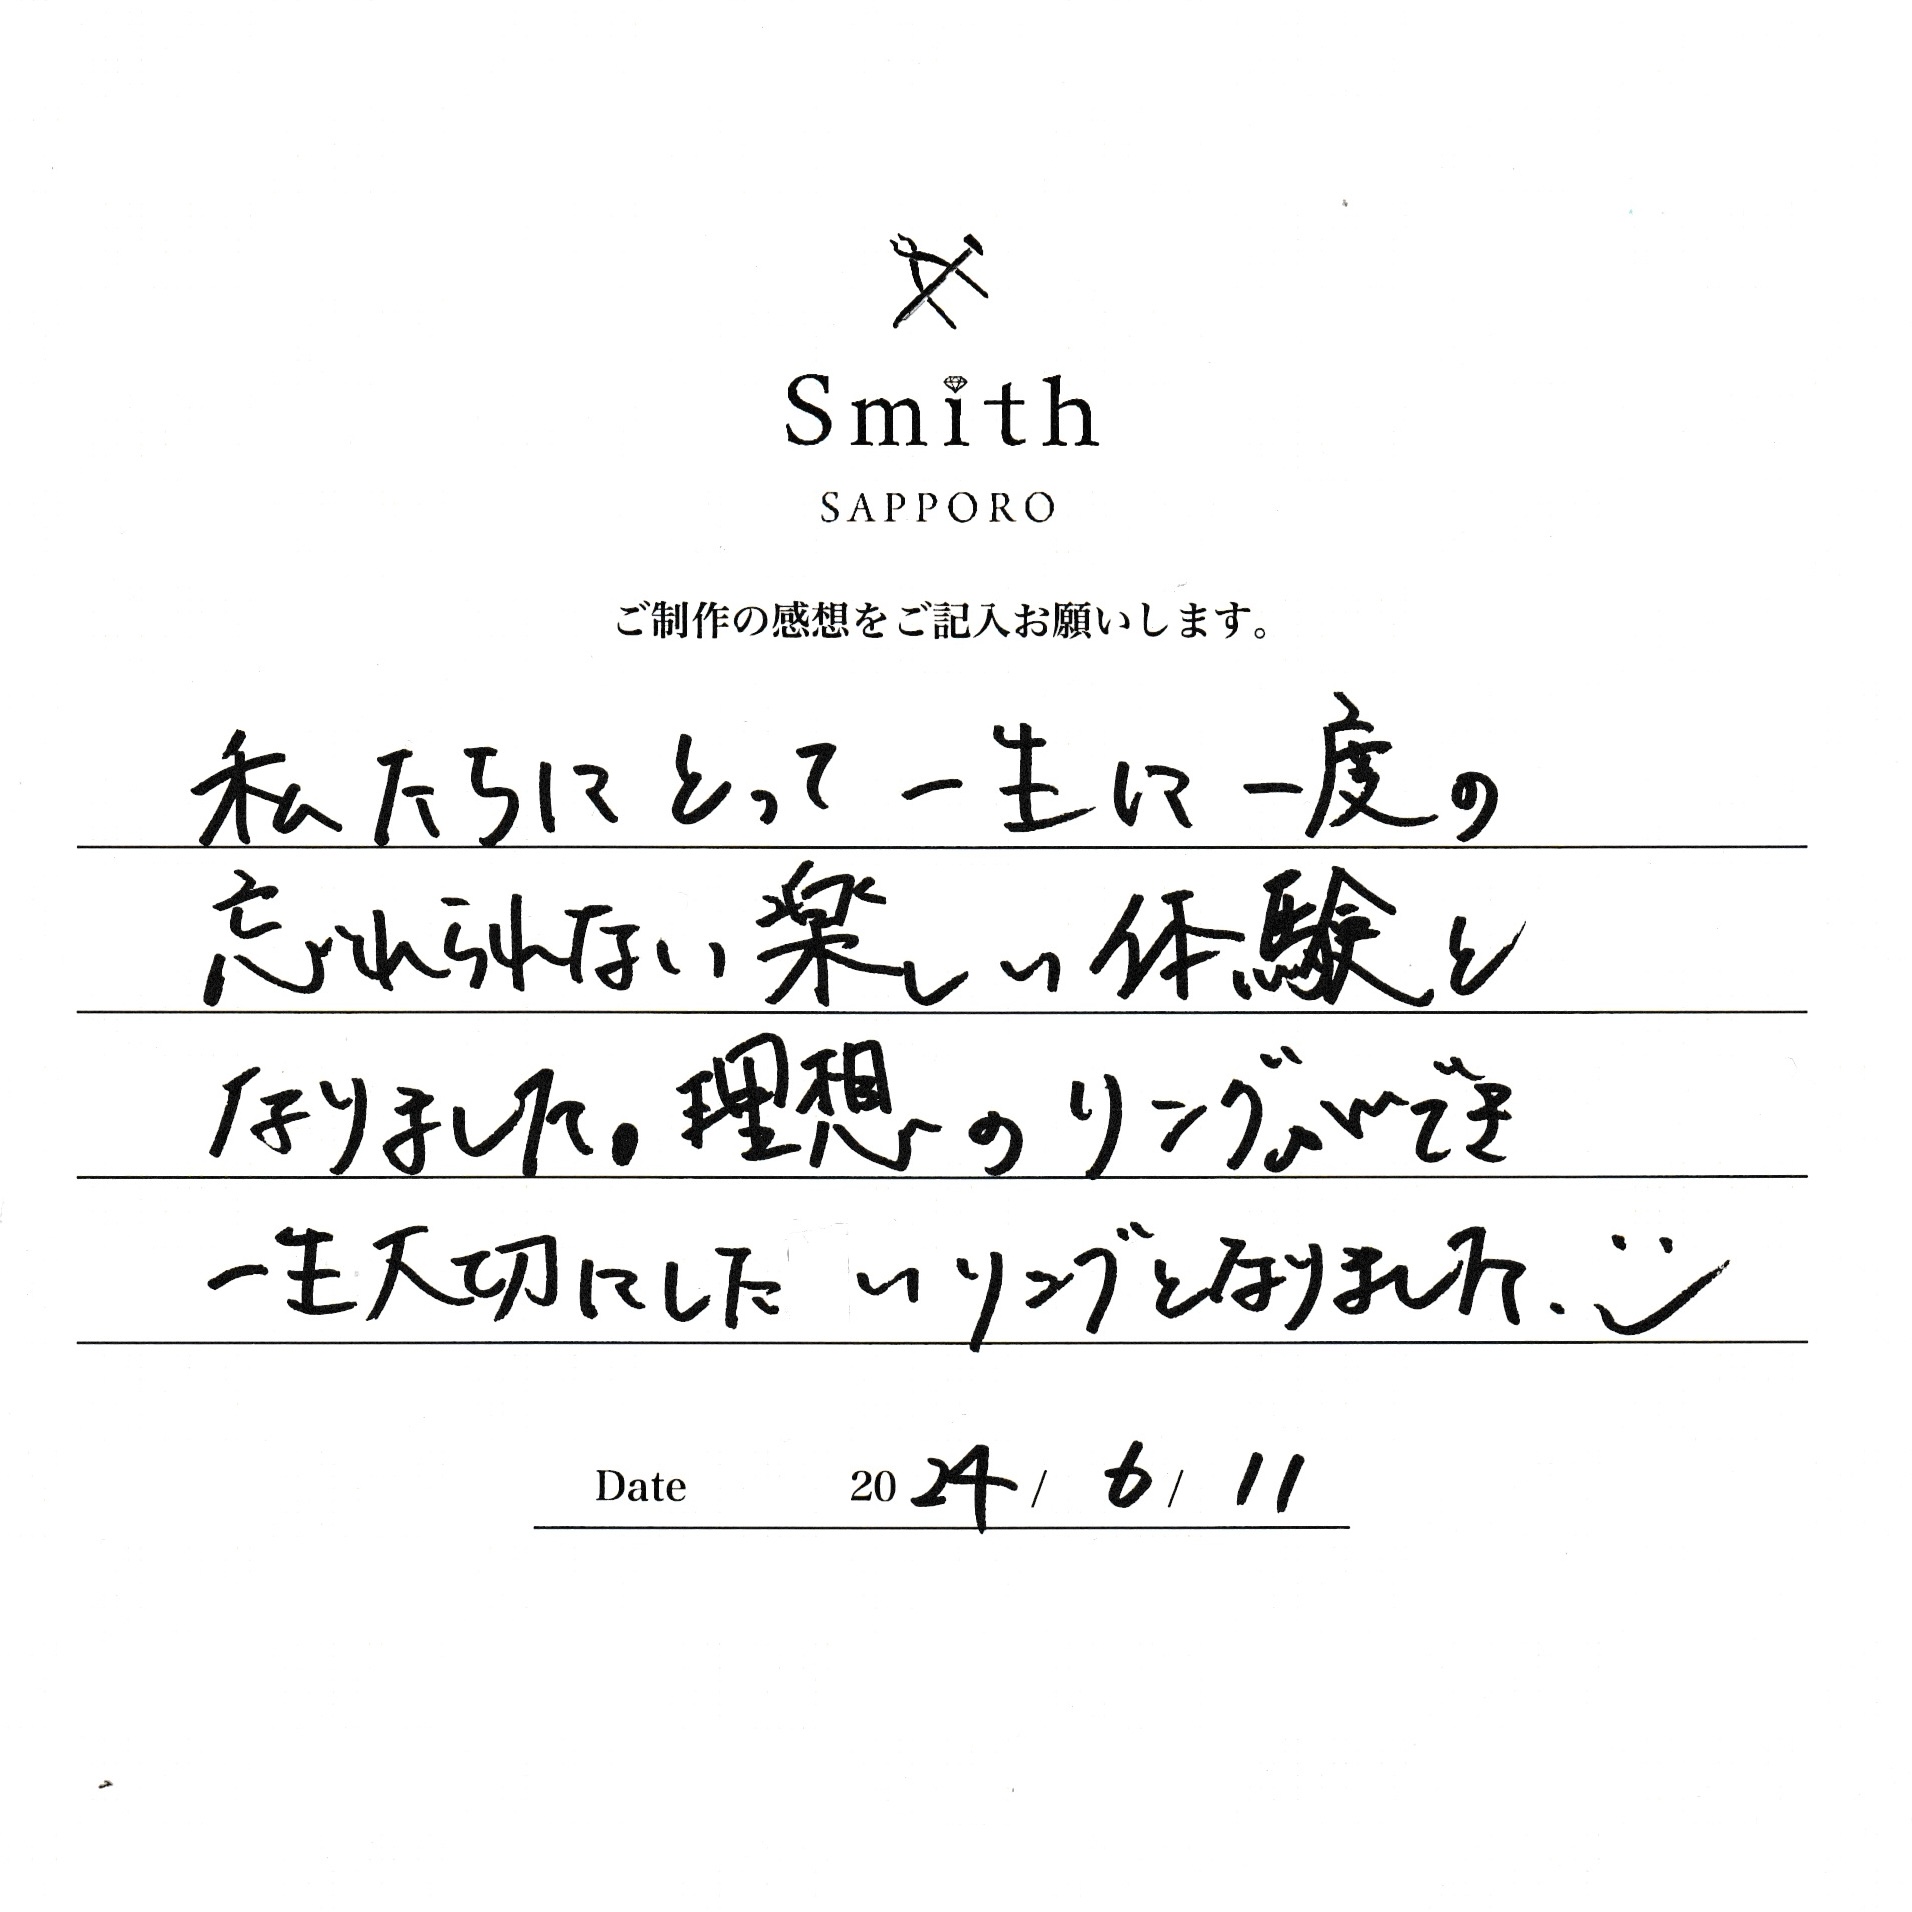 Smith
SAPPORO
ご制作の感想をご記入お願いします。
私たちにとって一生に一度の
忘れられない楽しい体験と
なりました。理想のリングができ
一生大切にしたいリングとなりました.
Date 2024/6/11